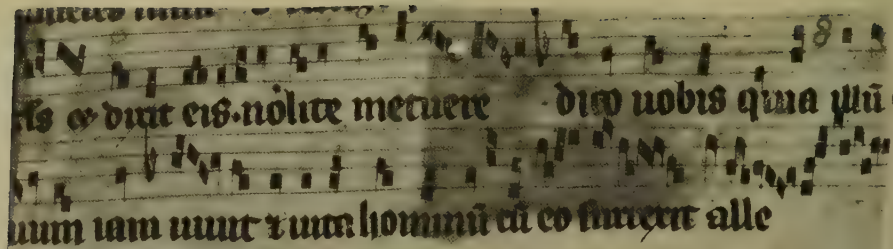 ce dixit eis. nolite metuere dico uobis quia illū
uum iam uiuit ⁊ uita hominū cū eo surrexit alle